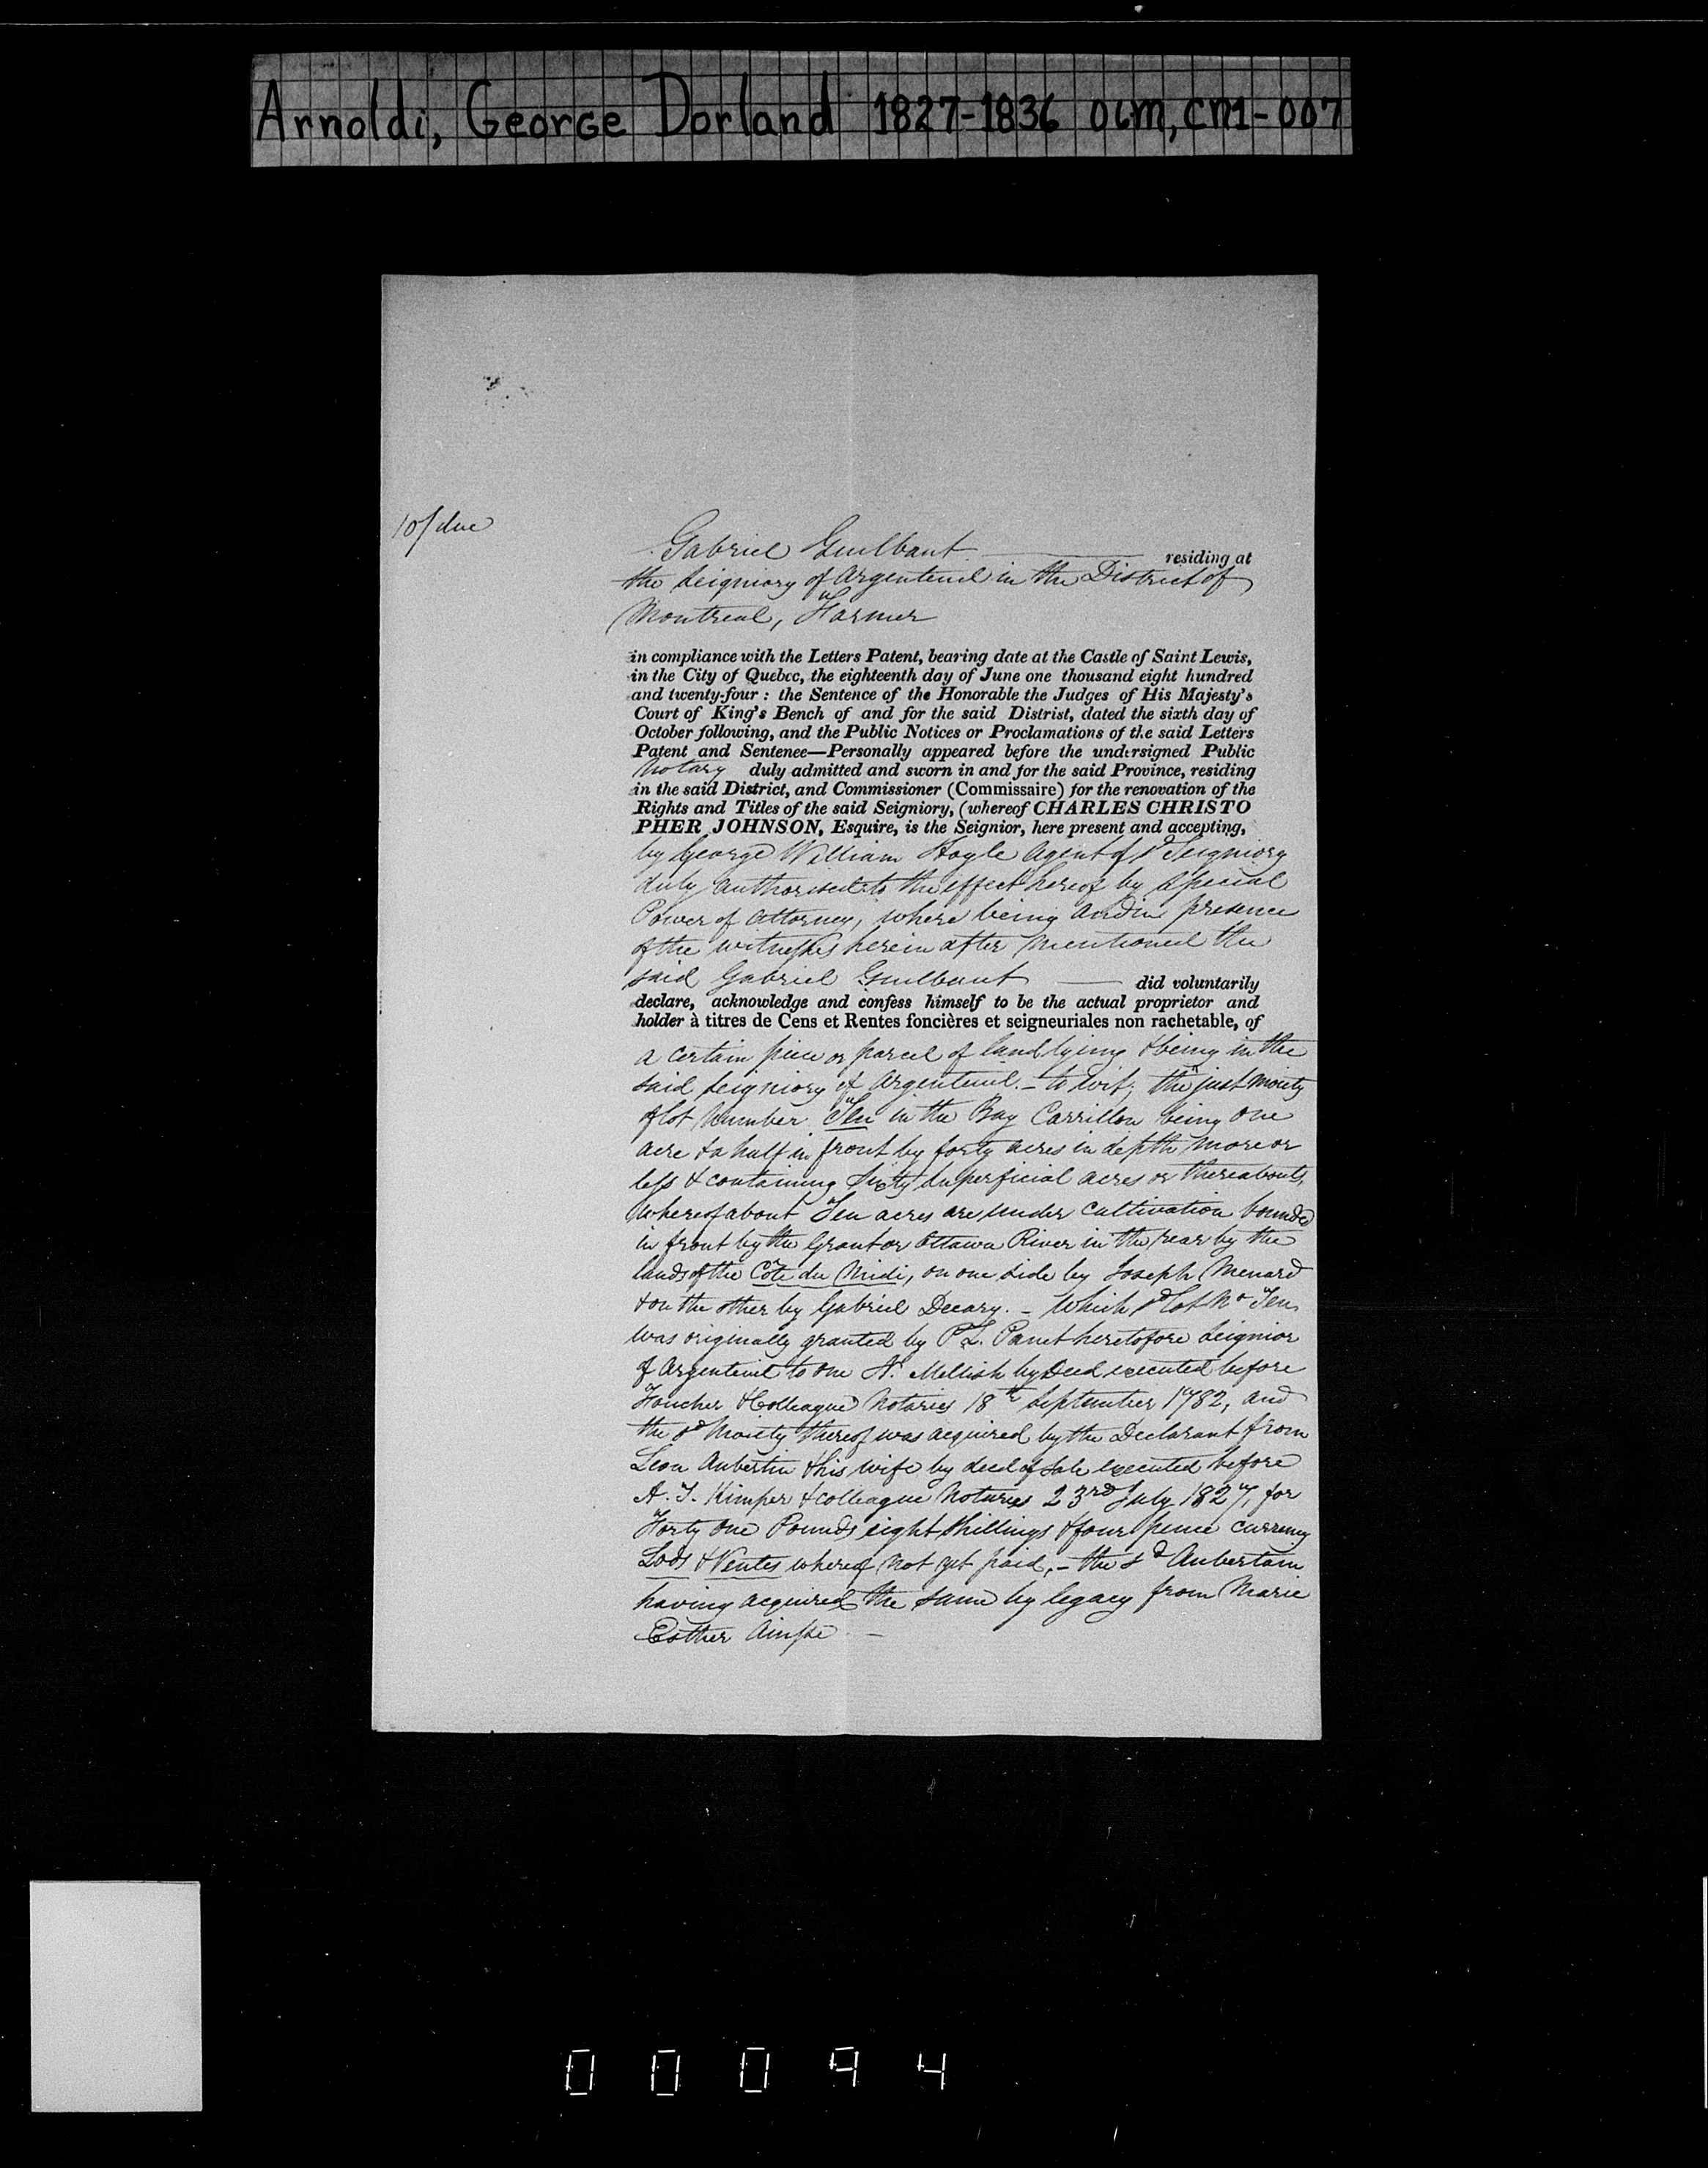 Arnoldi, George Dorland 1827-1836 06M, CM1-007
10/ due
Gabriel Guilbaut residing at
the Seigniory of Argenteuil in the District of
Montreal, Farmer
in compliance with the Letters Patent, bearing date at the Castle of Saint Lewis,
in the City of Quebec, the eighteenth day of June one thousand eight hundred
and twenty-four : the Sentence of the Honorable the Judges of His Majesty's
Court of King's Bench of and for the said Distrist, dated the sixth day of
October following, and the Public Notices or Proclamations of the said Letters
Patent and Sentenee—Personally appeared before the undersigned Public
Notary duly admitted and sworn in and for the said Province, residing
in the said District, and Commissioner (Commissaire) for the renovation of the
Rights and Titles of the said Seigniory, (whereof CHARLES CHRISTO
PHER JOHNSON, Esquire, is the Seignior, here present and accepting,
by George William Hoyle Agent of sd Seigniory
duly authorised to the effect hereof by Special
Power of Attorney, where being and in presence
of the witnesses herein after mentioned the
said Gabriel Guilbaut did voluntarily
declare, acknowledge and confess himself to be the actual proprietor and
holder à titres de Cens et Rentes foncières et seigneuriales non rachetable, of
a certain piece or parcel of land lying & being in the
said Seigniory of Argenteuil. - to wit; the just moiety
of lot Number Ten in the Bay Carrillon being one
acre & a half in front by forty acres in depth more or
less & containing sixty superficial acres or thereabouts,
whereof about Ten acres are under cultivation bounded
in front by the Grand or Ottawa River in the rear by the
lands of the Côte du Midi, on one side by Joseph Menard
& on the other by Gabriel Decary. - Which sd Lot No Ten
was originally granted by P. L. Panet heretofore Seignior
of Argenteuil to one A. Mellish by Deed executed before
Foucher & Colleague Notaries 18th September 1782, and
the sd Moiety thereof was acquired by the Declarant from
Leon Aubertin & his wife by deed of sale executed before
A. J. Kimper & colleague Notaries 23rd July 1827, for
Forty one Pounds eight Shillings & four pence currency
Lods & Ventes whereof not yet paid, - the sd Aubertain
having acquired the same by legacy from Marie
Esther Ainsse -
00094